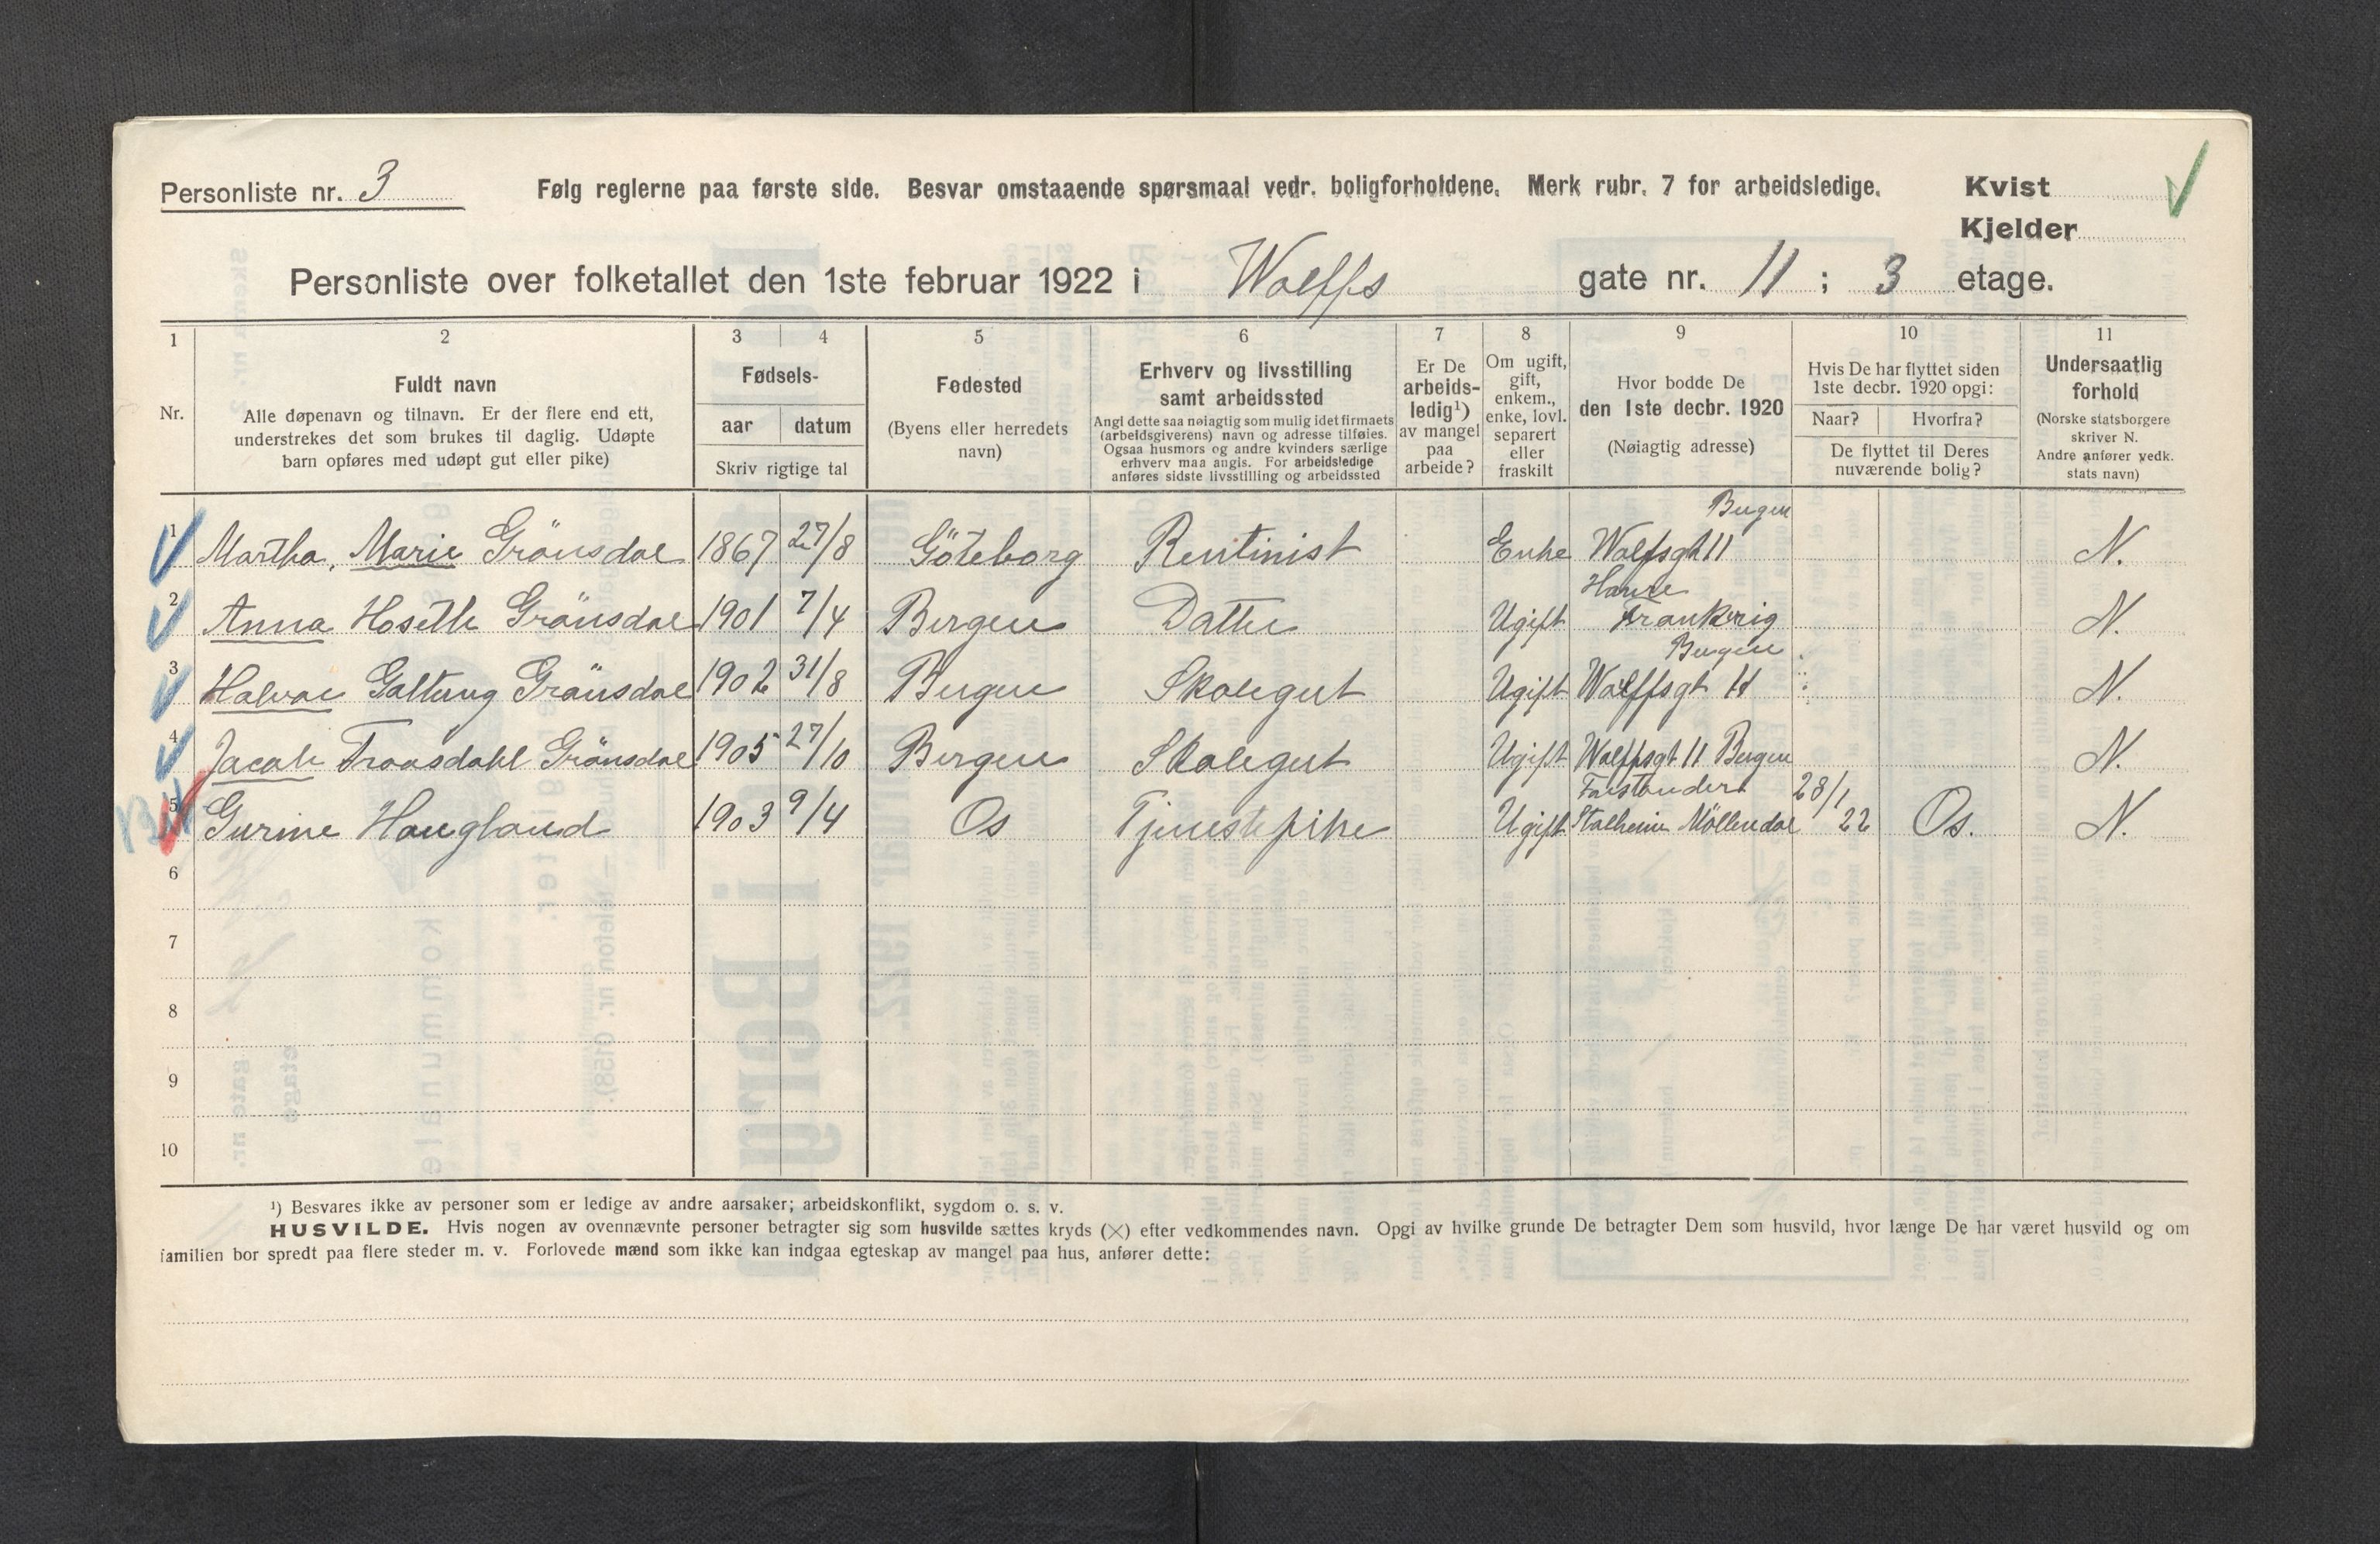 Personliste nr. 3
Følg reglerne paa første side. Besvar omstaaende spørsmaal vedr. boligforholdene. Merk rubr. 7 for arbeidsledige.
Kvist
Kjelder
Personliste over folketallet den 1ste februar 1922 i Wolffs gate nr. 11 ; 3 etage.
1 2 3 4 5 6 7 8 9 10 11
Nr.
Fuldt navn
Alle døpenavn og tilnavn. Er der flere end ett,
understrekes det som brukes til daglig. Udøpte
barn opføres med udøpt gut eller pike)
Fødsels-
aar datum
Skriv rigtige tal
Fødested
(Byens eller herredets
navn)
Erhverv og livsstilling
samt arbeidssted
Angi dette saa nøiagtig som mulig idet firmaets
(arbeidsgiverens) navn og adresse tilføies.
Ogsaa husmors og andre kvinders særlige
erhverv maa angis. For arbeidsledige
anføres sidste livsstilling og arbeidssted
Er De
arbeids-
ledig¹)
av mangel
paa
arbeide?
Om ugift,
gift,
enkem.,
enke, lovl.
separert
eller
fraskilt
Hvor bodde De
den 1ste decbr. 1920
(Nøiagtig adresse)
Hvis De har flyttet siden
1ste decbr. 1920 opgi:
Naar? Hvorfra?
De flyttet til Deres
nuværende bolig?
Undersaatlig
forhold
(Norske statsborgere
skriver N.
Andre anfører vedk.
stats navn)
Bergen
1 Martha, Marie Grönsdal 1867 27/8 Göteborg Rentinist Enke Wolfsgt 11 N.
Havre
2 Anna Hoseth Grönsdal 1901 7/4 Bergen Datter Ugift Frankrig N.
Bergen
3 Halvar Galtung Grönsdal 1902 31/8 Bergen Skolegut Ugift Wolffsgt 11 N.
4 Jacob Troasdahl Grönsdal 1905 27/10 Bergen Skolegut Ugift Wolffsgt 11 Bergen N.
Forstander
5 Gurine Haugland 1903 9/4 Os Tjenestepike Ugift Stalheim Möllendal 28/1 22 Os. N.
6
7
8
9
10
¹) Besvares ikke av personer som er ledige av andre aarsaker; arbeidskonflikt, sygdom o. s. v.
HUSVILDE. Hvis nogen av ovennævnte personer betragter sig som husvilde sættes kryds (×) efter vedkommendes navn. Opgi av hvilke grunde De betragter Dem som husvild, hvor længe De har været husvild og om
familien bor spredt paa flere steder m. v. Forlovede mænd som ikke kan indgaa egteskap av mangel paa hus, anfører dette: